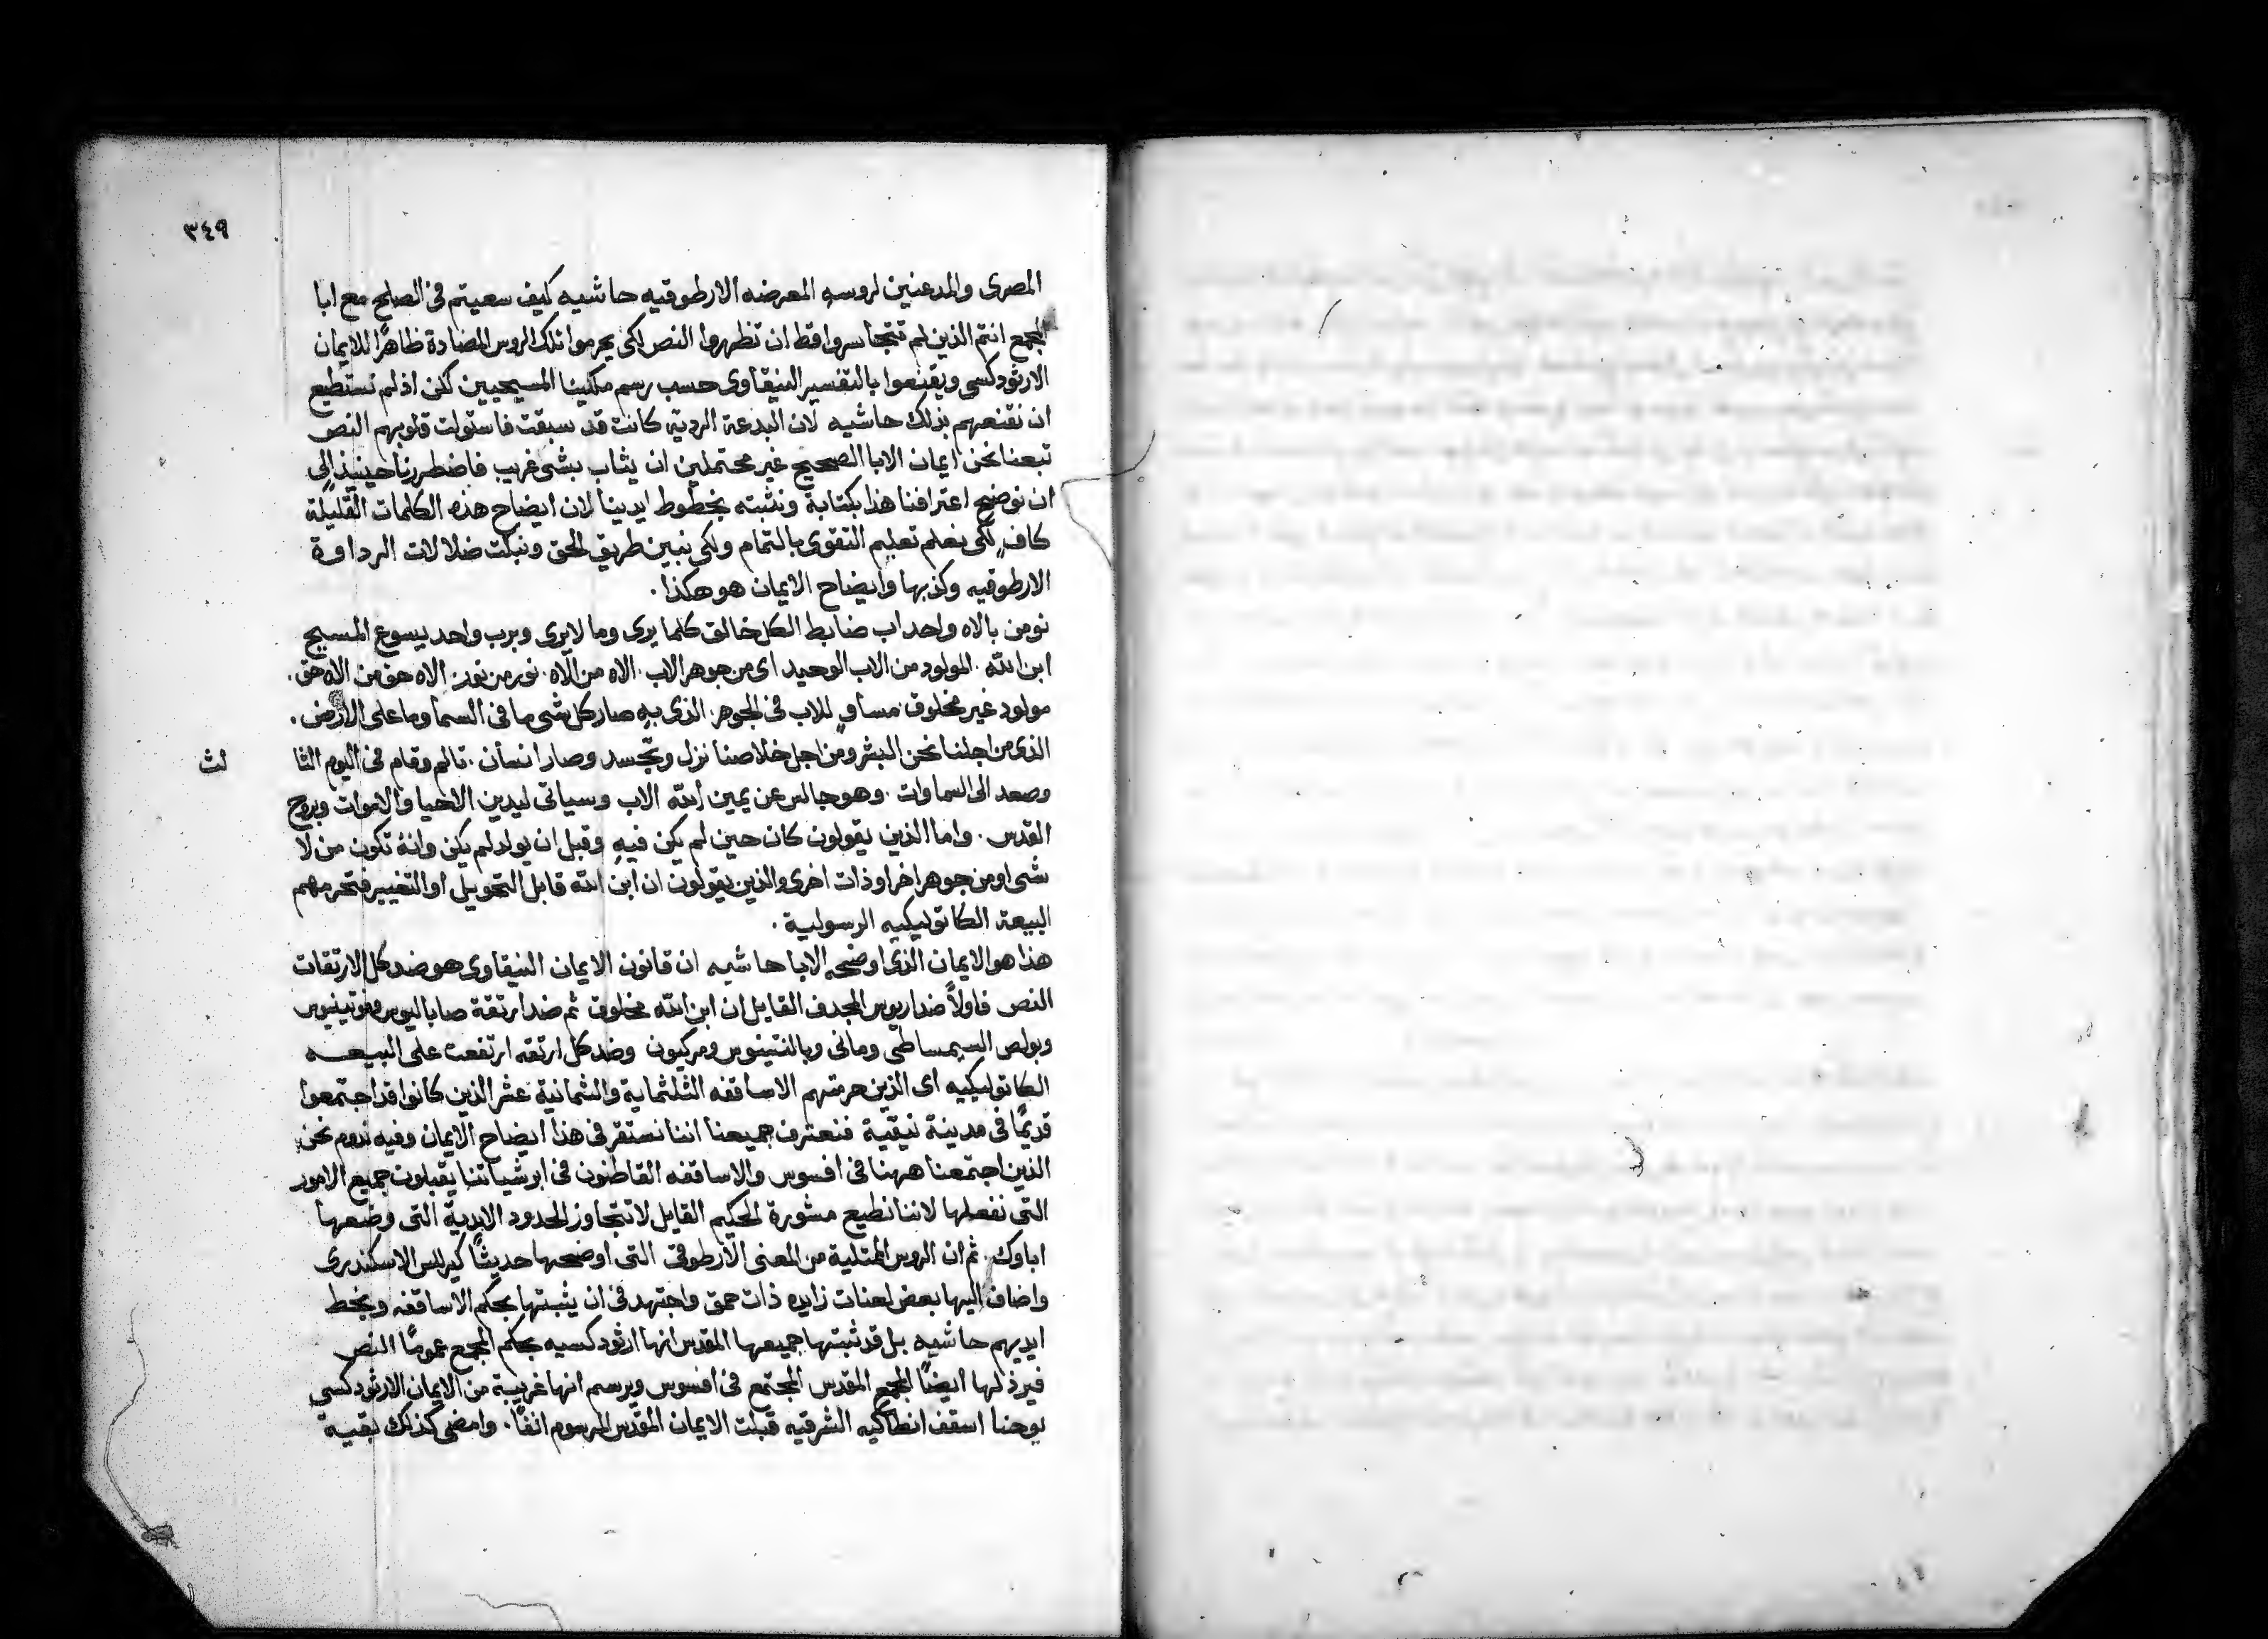 ٣٤٩
المصرى والمدعنين لروسه المعرضه الارطوقيه حاشيه كيف سعيتم فى الصلح مع ابا
المجمع انتم الذين لم تتجاسروا قط ان تظهروا النص لكى يحرموا تلك الروس المضادة ظاهرًا للايمان
الارثودكسى ويقنعوا بالتفسير النيقاوى حسب رسم ملكينا المسيحيين لكن اذ لم نستطيع
ان نقنعهم بذلك حاشيه لان البدعة الرديه كانت قد سبقت فاستولت قلوبهم النص
تبعنا نحن ايمان الابا الصحيح غير محتملين ان يثاب بشى غريب فاضطررنا حينيذ الى
ان نوضح اعترافنا هذا بكتابة ونثبته بخطوط ايدينا لان ايضاح هذه الكلمات القليلة
كافٍ لكى نعلم تعليم التقوى بالتمام ولكى نبين طريق الحق ونبكت ضلالات الرداوة
الارطوقيه وكذبها وايضاح الايمان هو هكذا .
نومن بالاه واحد اب ضابط الكل خالق كلما يرى وما لايرى وبرب واحد يسوع المسيح
ابن الله . المولود من الاب الوحيد اى من جوهر الاب . الاه من الاه . نور من نور . الاه حق من الاه حق .
مولود غير مخلوق مساوٍ للاب فى الجوهر . الذى به صار كل شى ما فى السما وما على الارض .
الذى من اجلنا نحن البشر ومن اجل خلاصنا نزل وتجسد وصار انسان . تالم وقام فى اليوم الثا
لث
وصعد الى السماوات . وهو جالس عن يمين الله الاب وسياتى ليدين الاحيا والاموات وبروح
القدس . واما الذين يقولون كان حين لم يكن فيه وقبل ان يولد لم يكن وانه تكون من لا
شى او من جوهر اخر او ذات اخرى والذين يقولون ان ابن الله قابل التحويل او التغيير فتحرمهم
البيعة الكاتوليكيه الرسولية .
هذا هو الايمان الذى اوضحه الابا حاشيه ان قانون الايمان النيقاوى هو ضد كل الارتقات
النص فاولاً ضد اريوس المجدف القايل ان ابن الله مخلوق ثم ضد ارتقة صاباليوس وفوتينيوس
وبولص السيمساطى ومانى وبالنتينوس ومركيون وضد كل ارتقه ارتفعت على البيعه
الكاتوليكيه اى الذين حرمتهم الاساقفه الثلثماية والثمانية عشر الذين كانوا قد اجتمعوا
قديمًا فى مدينة نيقية فنعترف جميعنا اننا نستقر فى هذا ايضاح الايمان وفيه ندوم نحن
الذين اجتمعنا ههنا فى افسوس والاساقفه القاطنون فى ابرشياتنا يقبلون جميع الامور
التى نفعلها لاننا نطيع مشورة الحكيم القايل لا تتجاوز الحدود الابدية التى وضعها
اباوك . ثم ان الروس الممتلية من المعنى الارطوقى التى اوضحها حديثًا كيرللس الاسكندرى
واضاف اليها بعض لعنات زايده ذات حمق واجتهد فى ان يثبتها بحكم الاساقفه وبخط
ايديهم حاشيه بل قد ثبتها جميعها المقدس انها ارثودكسيه بحكم المجمع عمومًا النص
فيرذلها ايضًا المجمع المقدس المجتمع فى افسوس ويرسم انها غريبة من الايمان الارثودكسى
يوحنا اسقف انطاكيه الشرقيه قبلت الايمان المقدس المرسوم انفًا . وامضى كذلك بقية